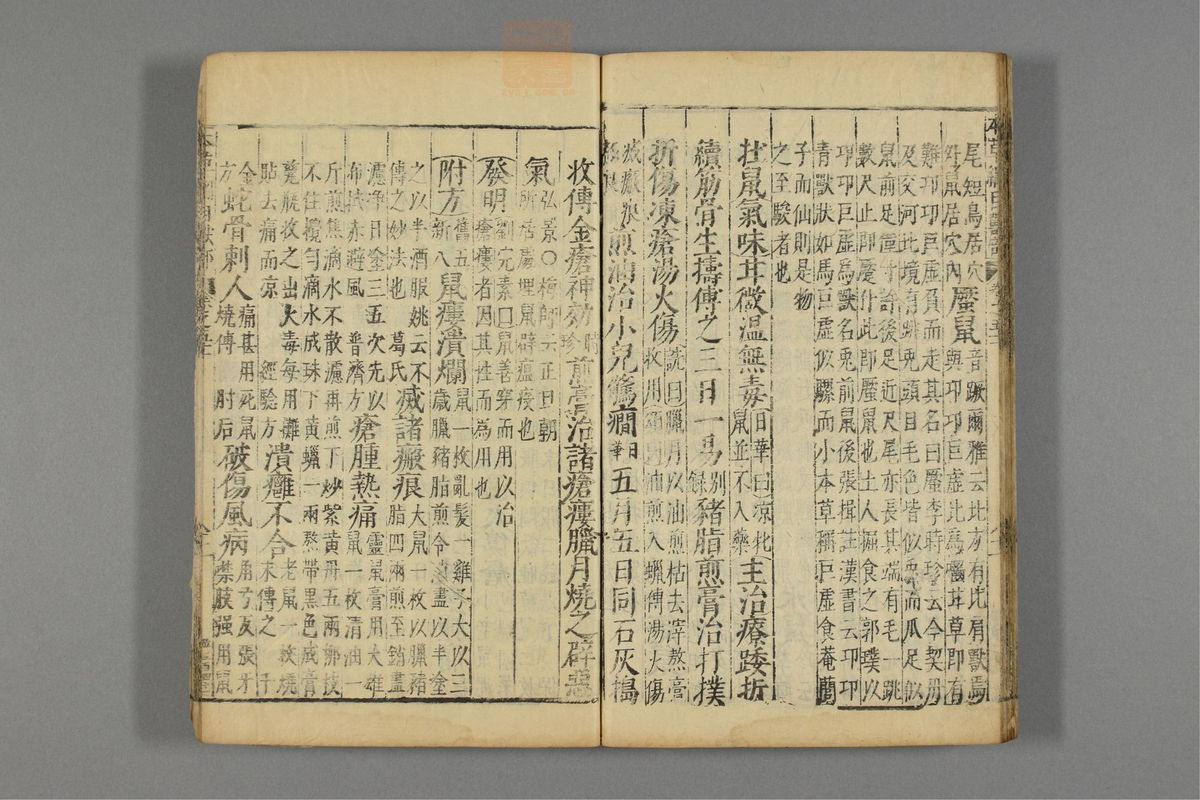 尾短鳥居穴
外鼠居穴內
蟨鼠
音蹶爾雅云此方有比肩獸焉
與卭卭巨虛比為囓甘草即有
難卭卭巨虛負而走其名曰蟨李時珍云今契丹
及交河北境有跳兎頭目毛色皆似兎而爪足似
鼠前足僅寸許後足近尺尾亦長其端有毛一跳
數尺止即蟨仆此即蟨鼠也土人掘食之郭璞以
卭卭巨虛為獸名兎前鼠後張揖註漢書云卭卭
青獸狀如馬巨虛似騾而小本草稱巨虛食菴䕡
子而仙則是物
之至駿者也
牡鼠氣味甘微溫無毒
日華曰涼牝
鼠並不入藥
主治療踒折
續筋骨生擣傅之三日一易
別
錄
豬脂煎膏治打撲
折傷凍瘡湯火傷
詵曰臘月以油煎枯去滓熬膏
收用頌曰油煎入蠟傅湯火傷
滅瘢疵
極良
煎油治小兒驚癇
日
華
五月五日同石灰搗
收傅金瘡神効
時
珍
煎膏治諸瘡瘻臘月燒之辟惡
氣
弘景○梅師云正旦朝
所居處埋鼠辟瘟疫也
發明
劉完素曰鼠善穿而用以治
瘡瘻者因其性而為用也
附方
舊五
新八
鼠瘻潰爛
鼠一枚亂髮一雞子大以三
歲臘豬脂煎令消盡以半塗
之以半酒服姚云不
傳之妙法也 葛氏
滅諸瘢痕
大鼠一枚以臘豬
脂四兩煎至銷盡
濾淨日塗三五次先以
布拭赤避風 普濟方
瘡腫熱痛
靈鼠膏用大雄
鼠一枚清油一
斤煎焦滴水不散濾再煎下炒紫黃丹五兩柳枝
不住攪勻滴水成珠下黃蠟一兩熬帶黑色成膏
瓷瓶收之出火毒每用攤
貼去痛而凉 經驗方
潰癰不合
老鼠一枚燒
末傅之 千
金
方
蛇骨刺人
痛甚用死鼠
燒傅 肘后
破傷風病
角弓反張牙
禁膜强用鼠